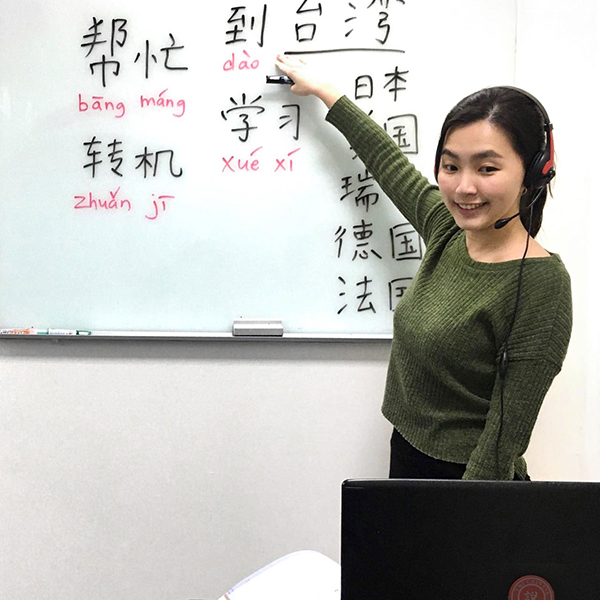 帮忙
bāng máng
转机
zhuǎn jī
到台湾
dào
学习
xué xí
日本
国
瑞
德国
法国